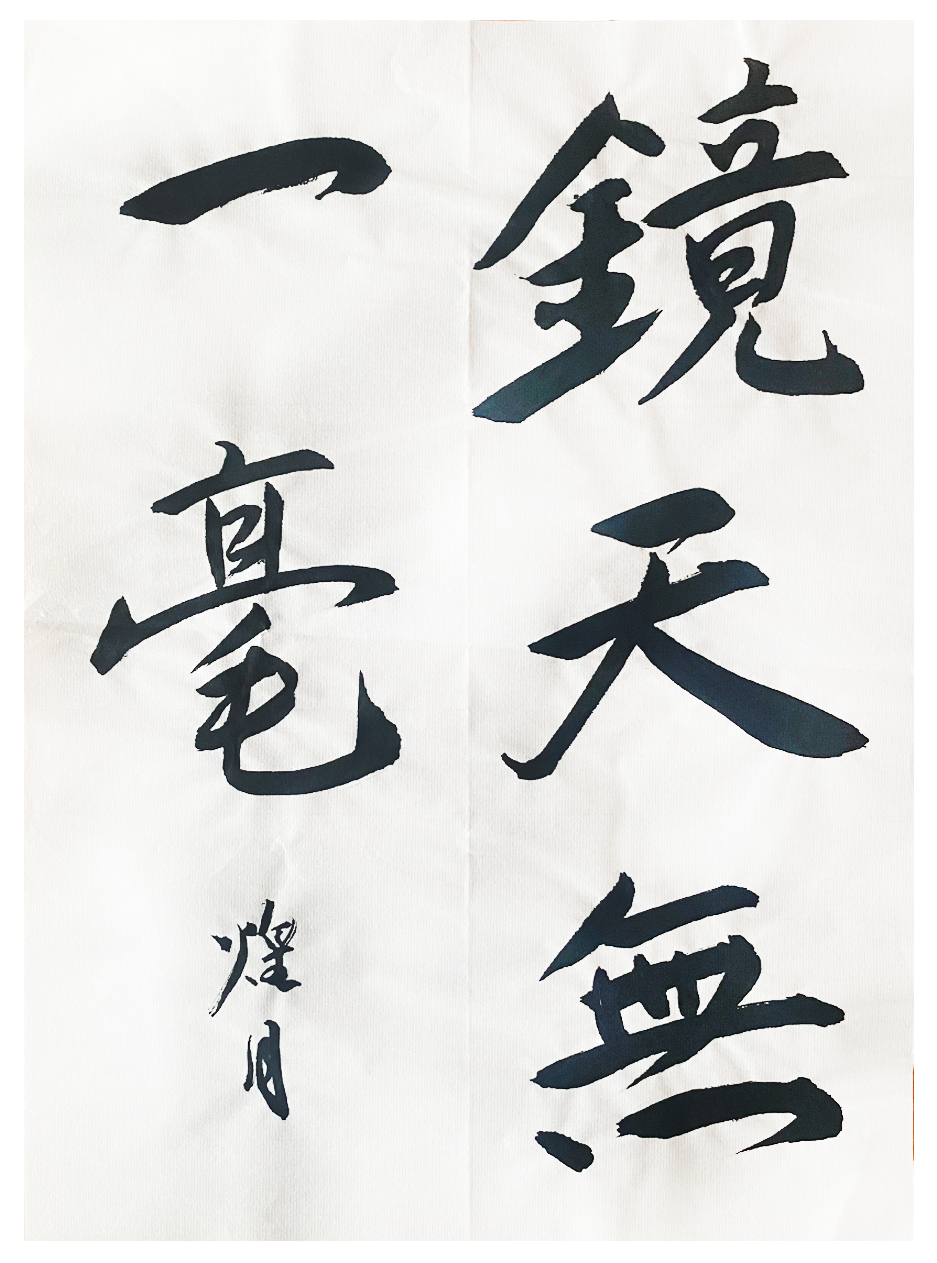 鏡天無
一毫
煌月